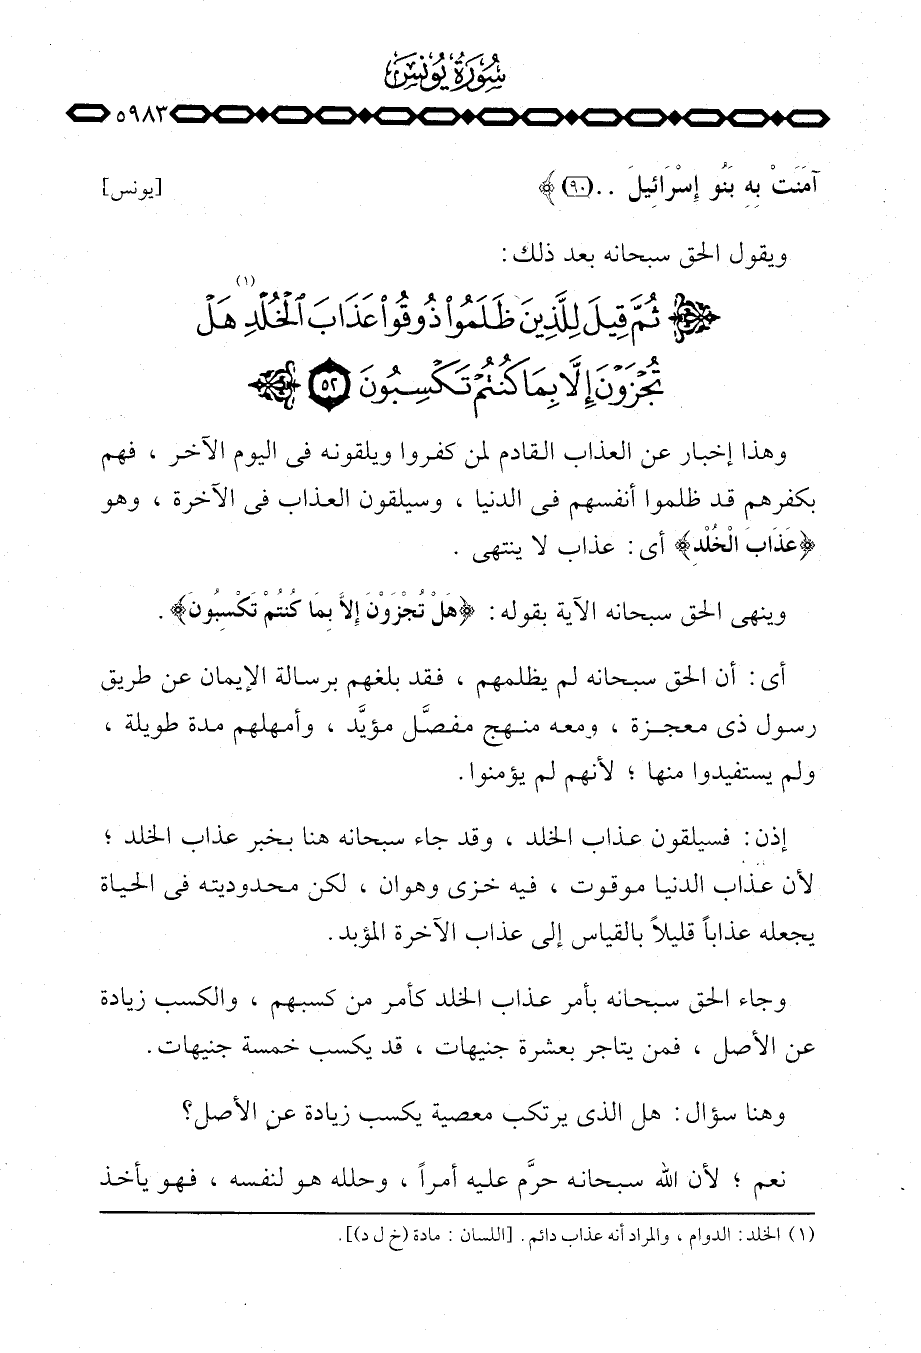 سُورَةُ يُونُسَ
٥٩٨٣
آمَنَتْ بِهِ بَنُو إِسْرَائِيلَ .. (٩٠) ﴾ [يونس]
ويقول الحق سبحانه بعد ذلك :
﴿ ثُمَّ قِيلَ لِلَّذِينَ ظَلَمُواْ ذُوقُواْ عَذَابَ ٱلْخُلْدِ (١) هَلْ
تُجْزَوْنَ إِلَّا بِمَا كُنتُمْ تَكْسِبُونَ ٥٢ ﴾
وهذا إخبار عن العذاب القادم لمن كفروا ويلقونه فى اليوم الآخر ، فهم
بكفرهم قد ظلموا أنفسهم فى الدنيا ، وسيلقون العذاب فى الآخرة ، وهو
﴿عَذَابَ الْخُلْدِ﴾ أى : عذاب لا ينتهى .
وينهى الحق سبحانه الآية بقوله : ﴿هَلْ تُجْزَوْنَ إِلاَّ بِمَا كُنتُمْ تَكْسِبُونَ﴾.
أى : أن الحق سبحانه لم يظلمهم ، فقد بلغهم برسالة الإيمان عن طريق
رسول ذى معجزة ، ومعه منهج مفصَّل مؤيَّد ، وأمهلهم مدة طويلة ،
ولم يستفيدوا منها ؛ لأنهم لم يؤمنوا .
إذن : فسيلقون عذاب الخلد ، وقد جاء سبحانه هنا بخبر عذاب الخلد ؛
لأن عذاب الدنيا موقوت ، فيه خزى وهوان ، لكن محدوديته فى الحياة
يجعله عذاباً قليلاً بالقياس إلى عذاب الآخرة المؤبد .
وجاء الحق سبحانه بأمر عذاب الخلد كأمر من كسبهم ، والكسب زيادة
عن الأصل ، فمن يتاجر بعشرة جنيهات ، قد يكسب خمسة جنيهات .
وهنا سؤال : هل الذى يرتكب معصية يكسب زيادة عن الأصل؟
نعم ؛ لأن الله سبحانه حرَّم عليه أمراً ، وحلله هو لنفسه ، فهو يأخذ
(١) الخلد : الدوام ، والمراد أنه عذاب دائم . [اللسان : مادة (خ ل د)] .